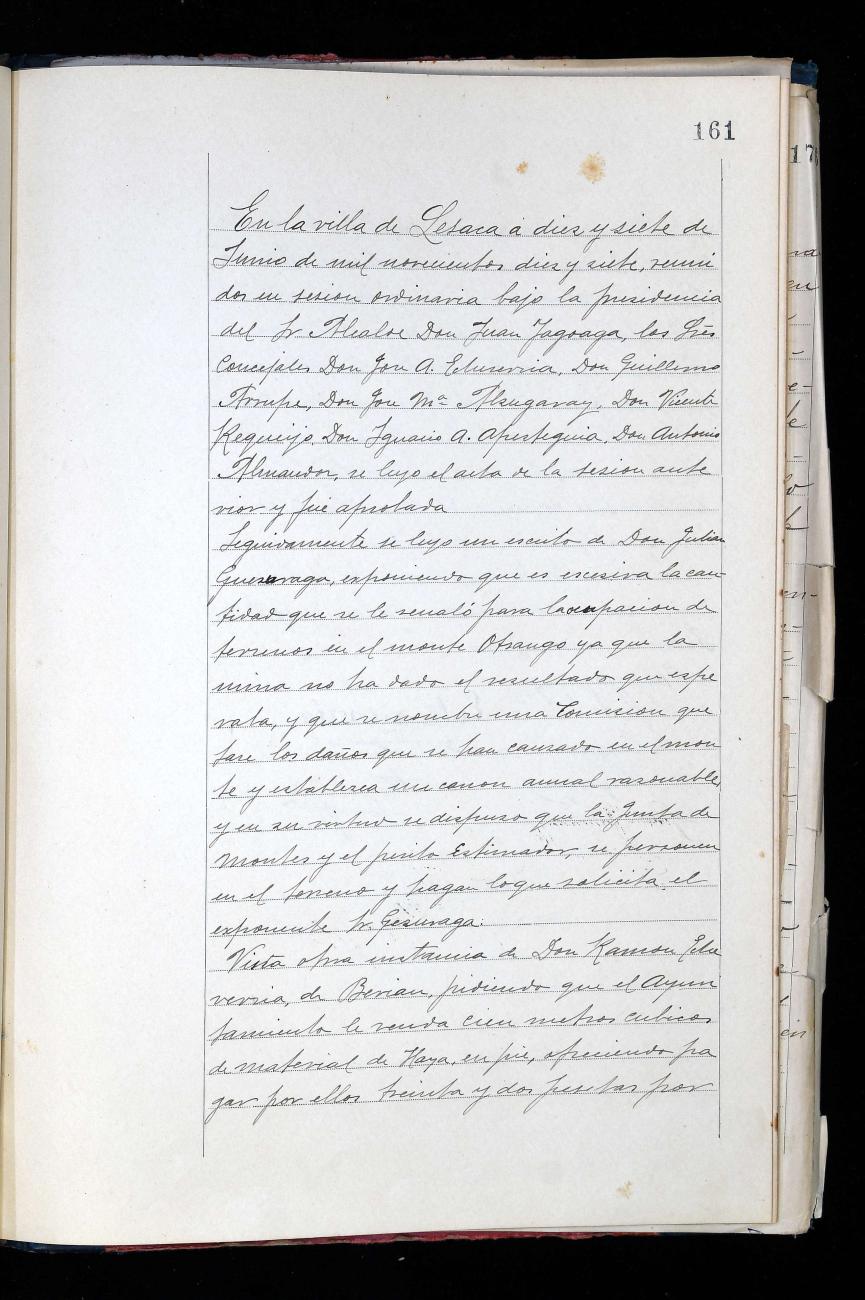 161
En la villa de Lesaca á diez y siete de
Junio de mil novecientos diez y siete, reuni
dos en sesion ordinaria bajo la presidencia
del Sr Alcalde Don Juan Jagoaga, los Srēs
Concejales Don Jose A. Echeverria, Don Guillermo
Arrupe, Don Jose Mª Alzugaray, Don Vicente
Requeijo, Don Ignacio A. Apesteguia, Don Antonio
Almandoz, se leyo el acta de la sesion ante
rior y fué aprobada
Seguidamente se leyo un escrito de Don Julian
Guesuraga, exponiendo que es escesiva la can-
tidad que se le señaló para la ocupacion de
terrenos en el monte Otsango ya que la
mina no ha dado el resultado que espe
raba, y que se nombre una Comision que
tase los daños que se han causado en el mon
te y establezca un canon anual razonable,
y en su virtud se dispuso que la Junta de
Montes y el perito Estimador, se personen
en el terreno y hagan lo que solicita el
exponente Sr. Gesuraga.
Vista otra instancia de Don Ramon Eche
verria, de Berian, pidiendo que el Ayun
tamiento le venda cien metros cubicos
de material de Haya, en pie, ofreciendo pa
gar por ellos treinta y dos pesetas por